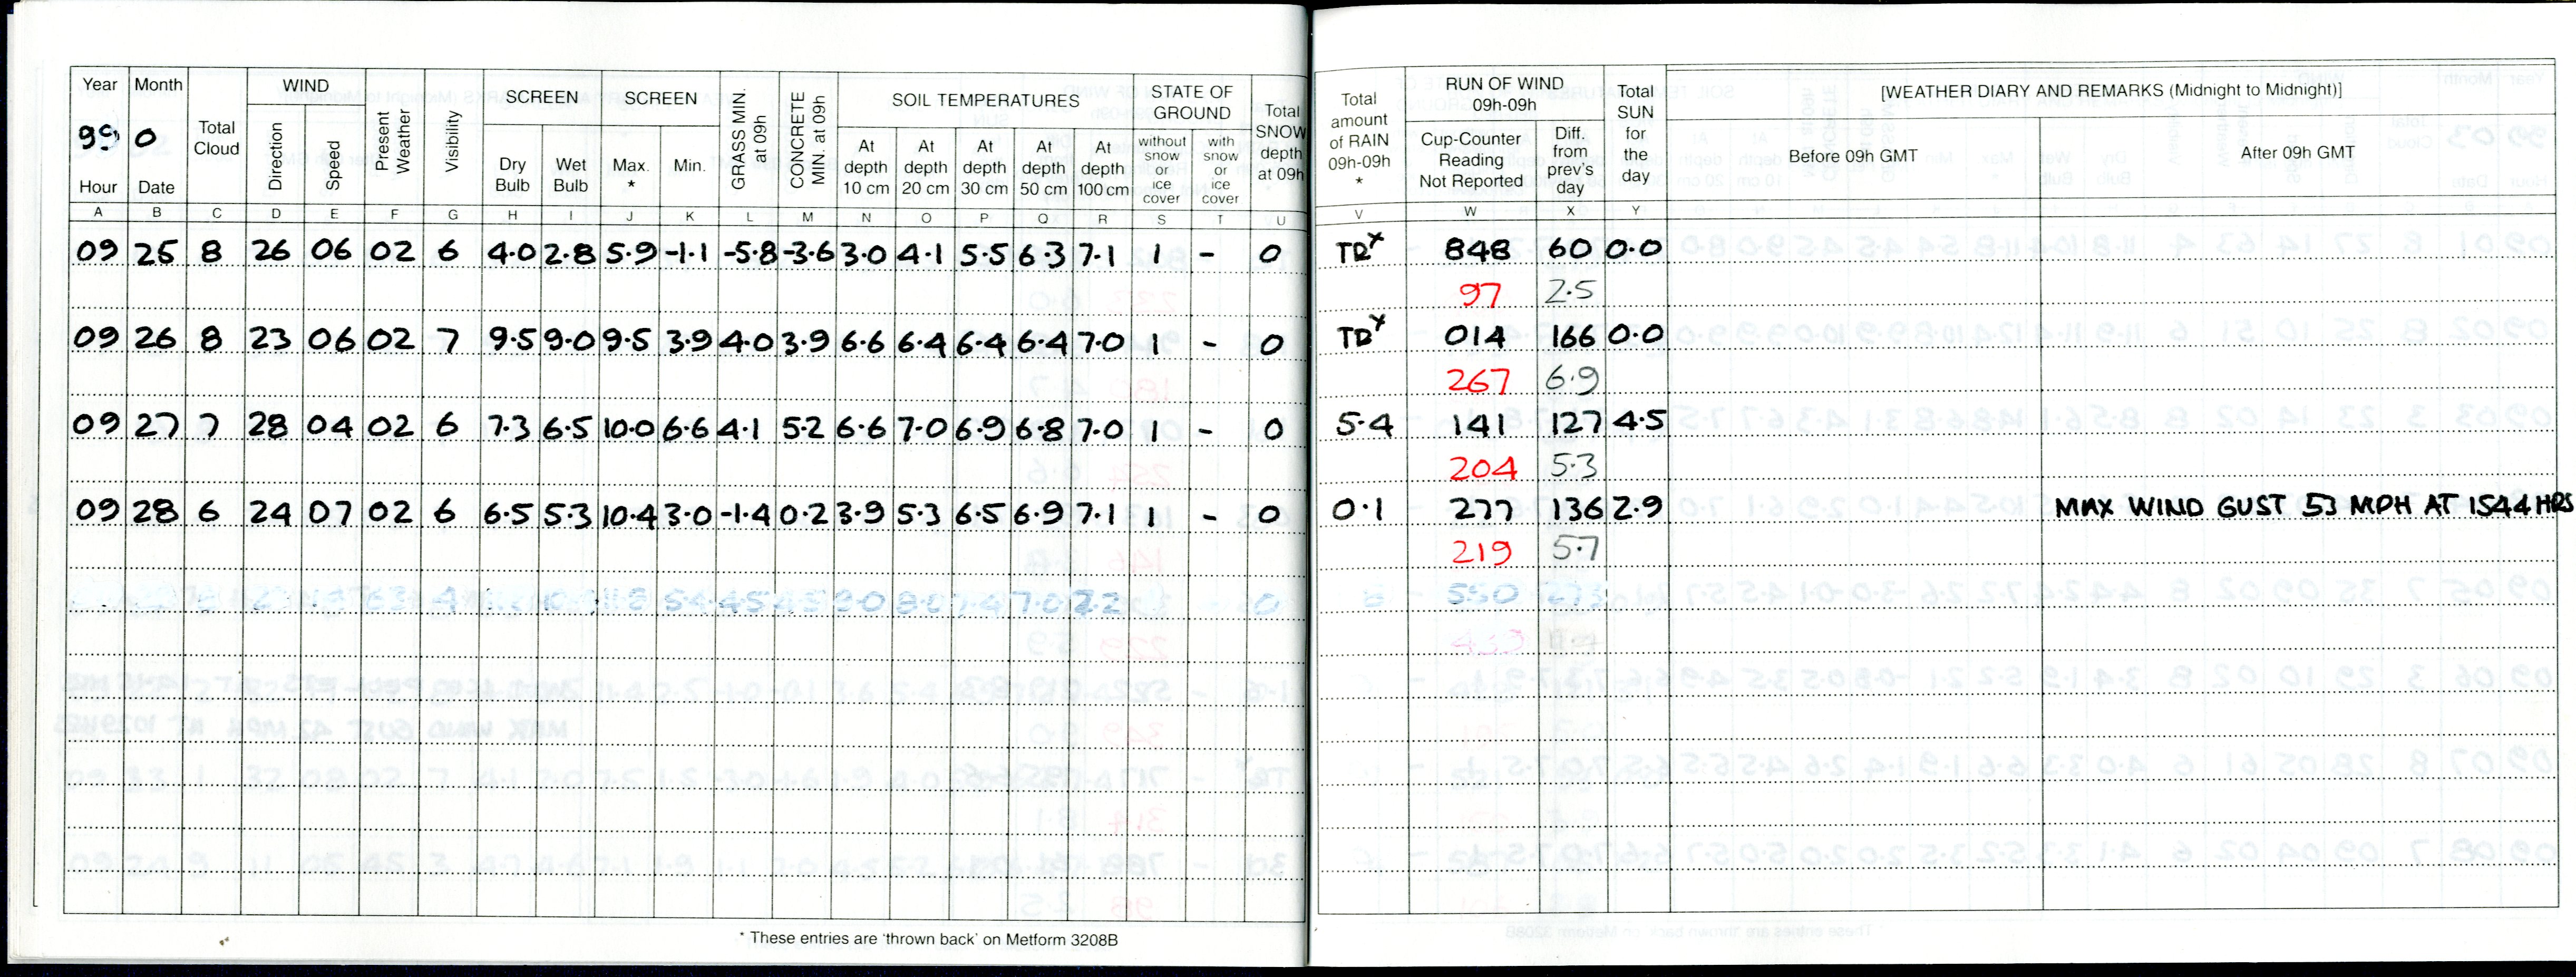 Year Month WIND SCREEN SCREEN GRASS MIN. at 09h CONCRETE MIN. at 09h SOIL TEMPERATURES STATE OF GROUND Total SNOW depth at 09h Total amount of RAIN 09h-09h * RUN OF WIND 09h-09h Total SUN for the day [WEATHER DIARY AND REMARKS (Midnight to Midnight)]
99 0 Total Cloud Direction Speed Present Weather Visibility
Hour Date Dry Bulb Wet Bulb Max. * Min. At depth 10 cm At depth 20 cm At depth 30 cm At depth 50 cm At depth 100 cm without snow or ice cover with snow or ice cover Cup-Counter Reading Not Reported Diff. from prev's day Before 09h GMT After 09h GMT
A B C D E F G H I J K L M N O P Q R S T U V W X Y
09 25 8 26 06 02 6 4.0 2.8 5.9 -1.1 -5.8 -3.6 3.0 4.1 5.5 6.3 7.1 1 - 0 TR* 848 60 0.0
97 2.5
09 26 8 23 06 02 7 9.5 9.0 9.5 3.9 4.0 3.9 6.6 6.4 6.4 6.4 7.0 1 - 0 TR* 014 166 0.0
267 6.9
09 27 7 28 04 02 6 7.3 6.5 10.0 6.6 4.1 5.2 6.6 7.0 6.9 6.8 7.0 1 - 0 5.4 141 127 4.5
204 5.3
09 28 6 24 07 02 6 6.5 5.3 10.4 3.0 -1.4 0.2 3.9 5.3 6.5 6.9 7.1 1 - 0 0.1 277 136 2.9 MAX WIND GUST 53 MPH AT 1544 HRS
219 5.7
* These entries are 'thrown back' on Metform 3208B